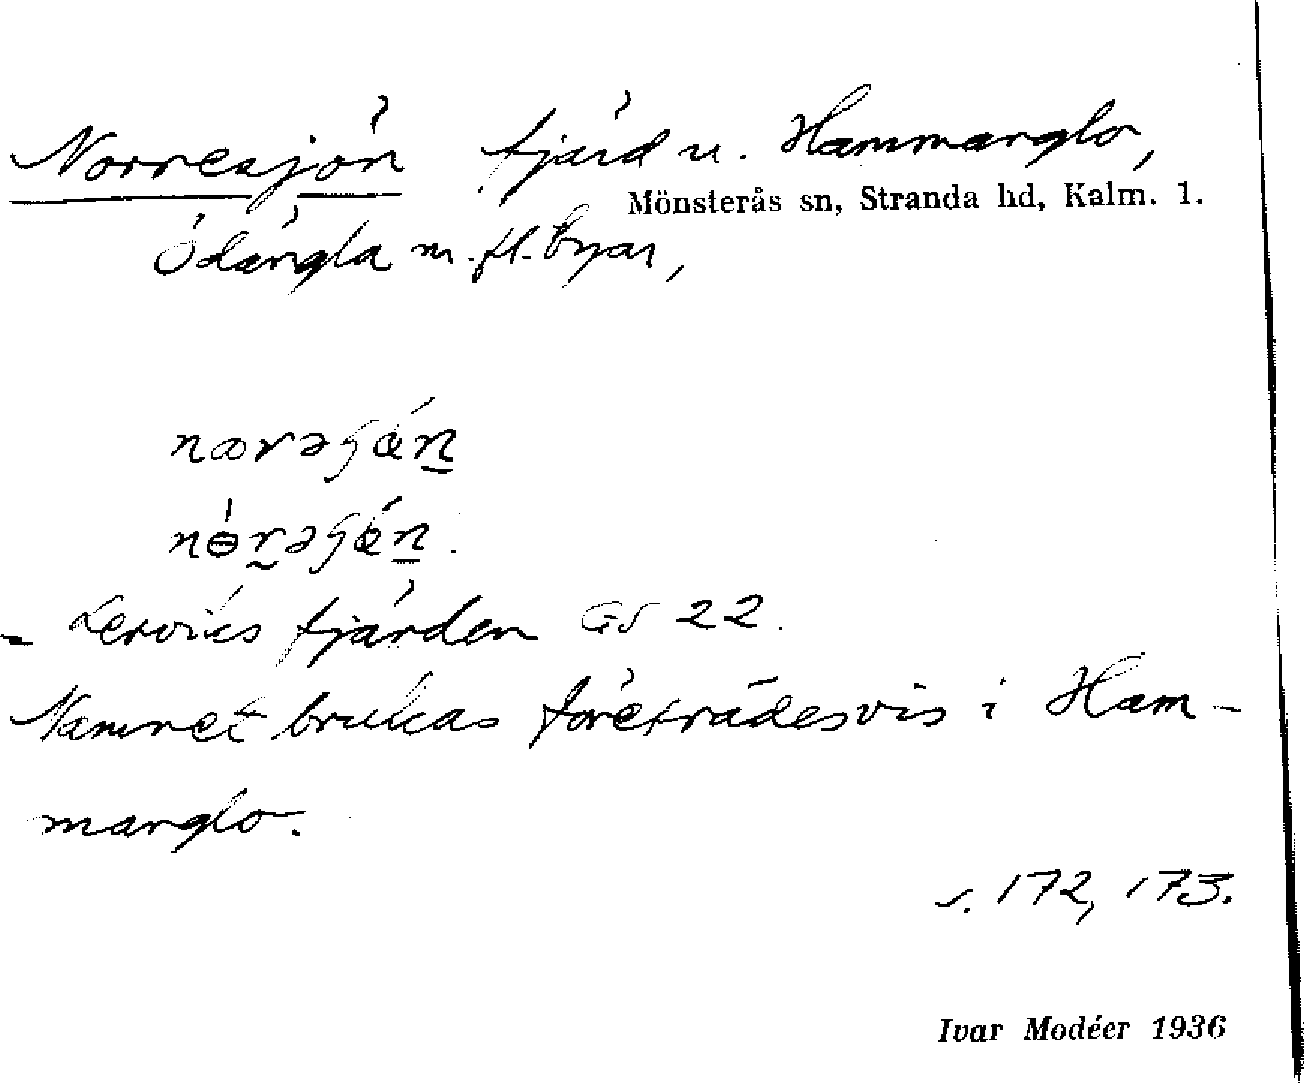 Norresjön fjärd u. Hammarglo,
Mönsterås sn, Stranda hd, Kalm. 1.
Ödängla m. fl. byar,
nɷrəʃǿn
nɵ́rəʃǿn.
= Lerviksfjärden GS 22.
Namnet brukas företrädesvis i Ham-
marglo.
s. 172, 173.
Ivar Modéer 1936